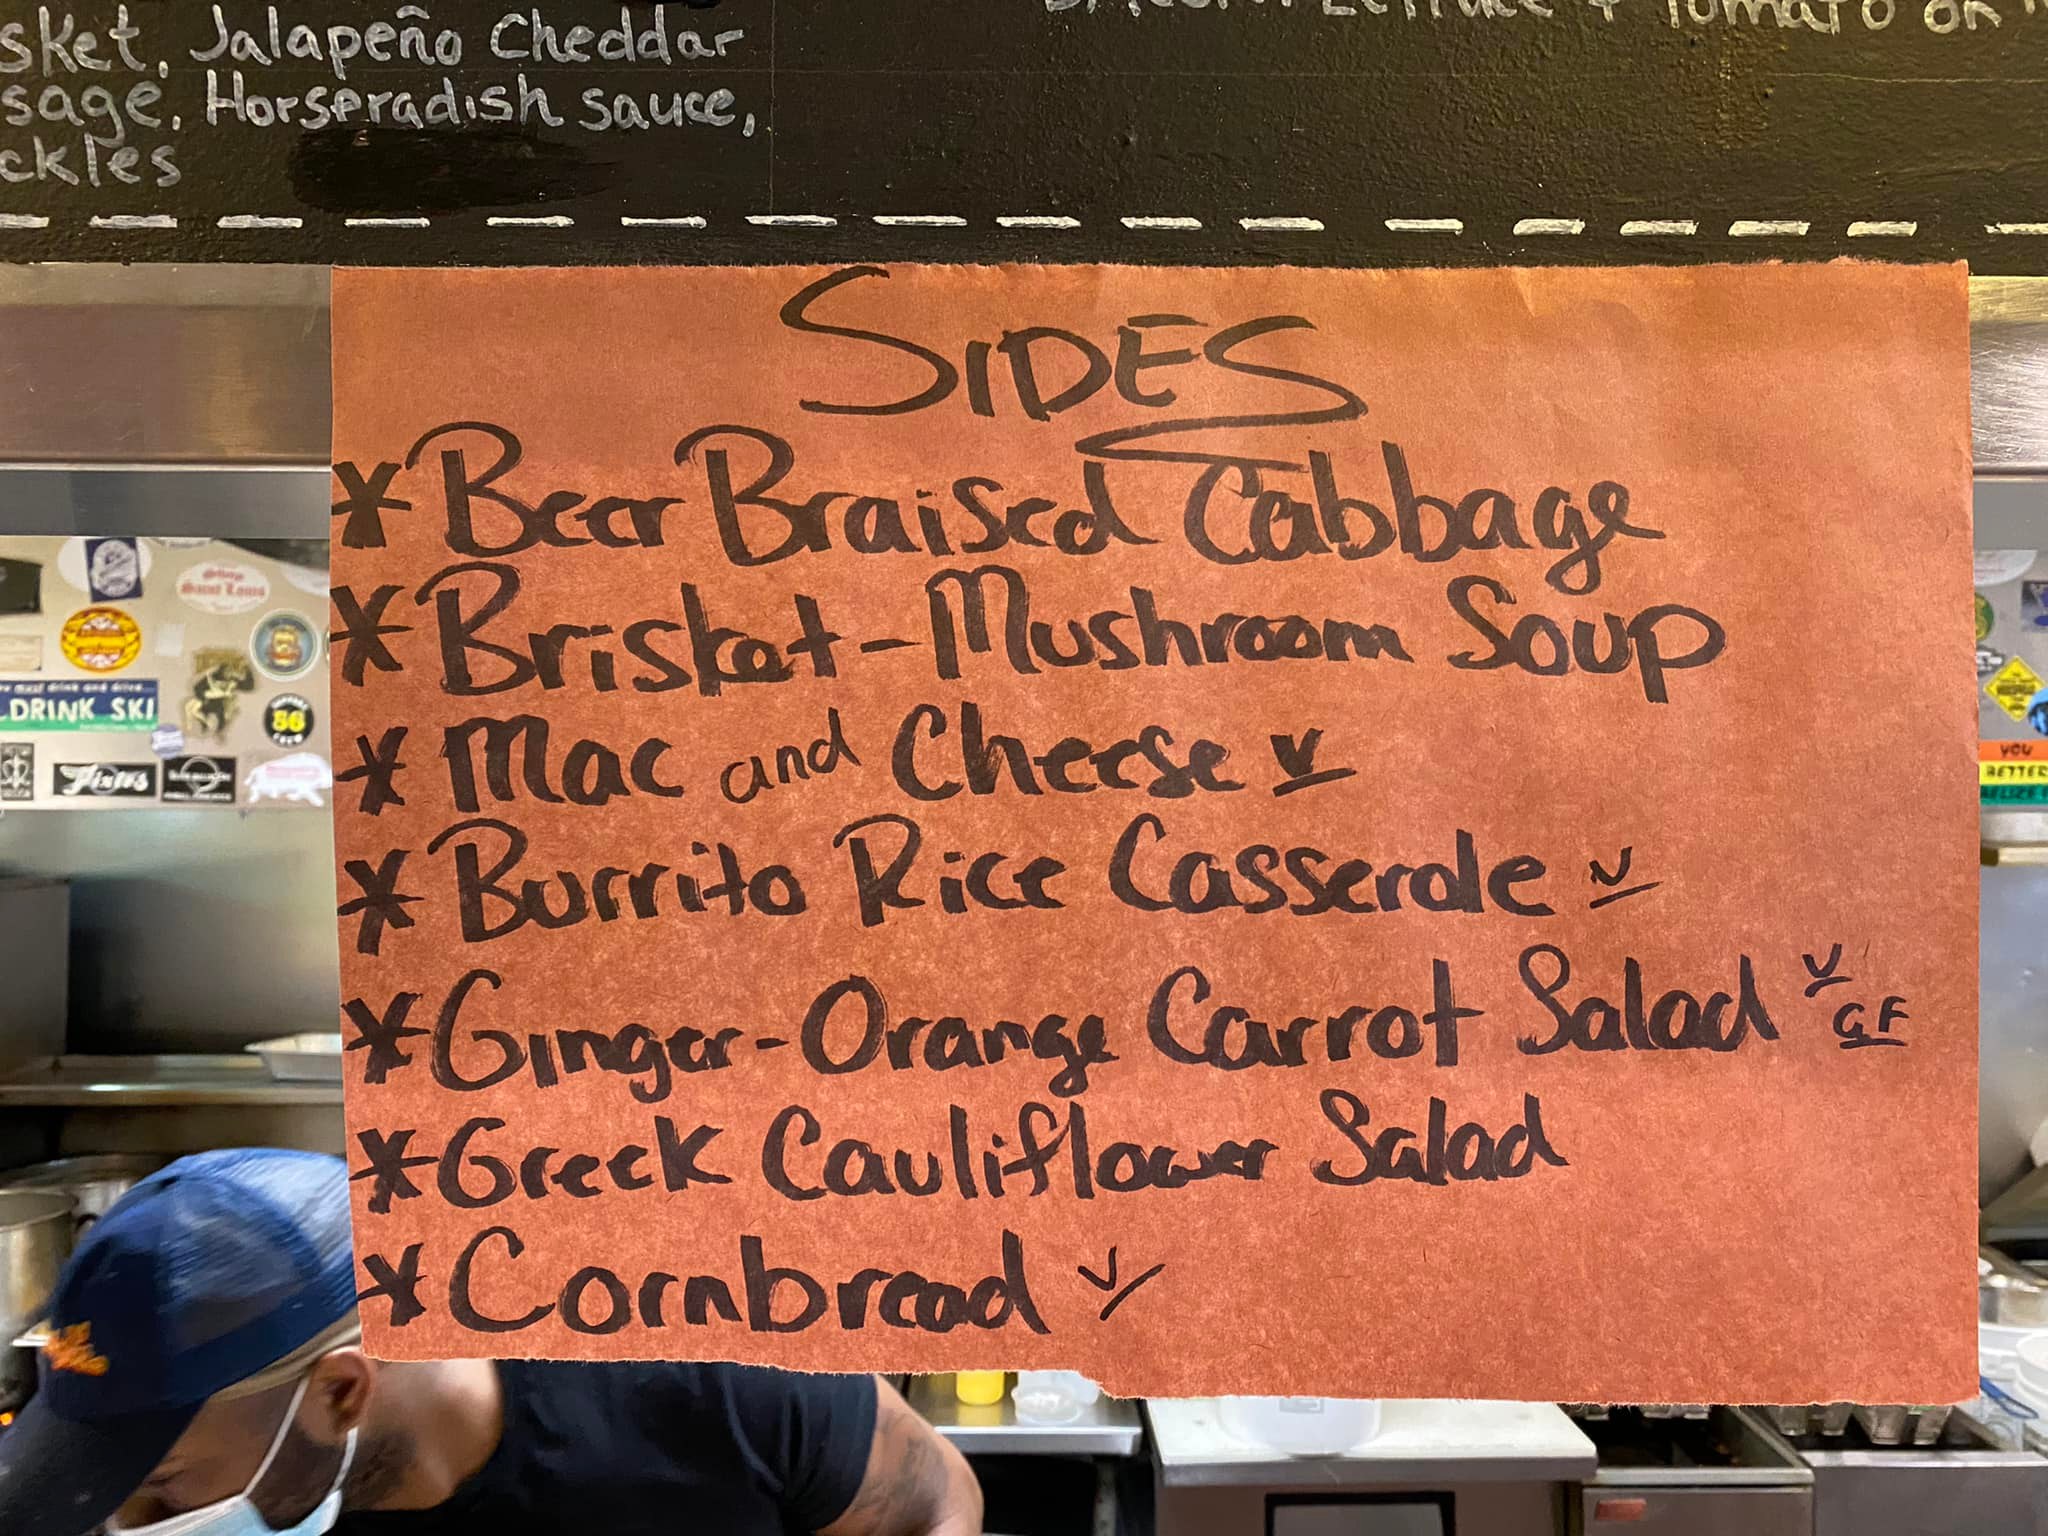 sket, Jalapeño Cheddar
sage, Horseradish sauce,
ckles
Lettuce + Tomato on
SIDES
* Beer Braised Cabbage
* Brisket-Mushroom Soup
* Mac and Cheese V
* Burrito Rice Casserole V
* Ginger-Orange Carrot Salad V
GF
* Greek Cauliflower Salad
* Cornbread V
Saint Louis
must drink and drive...
DRINK SKI
Pixies
36
YOU
BETTER